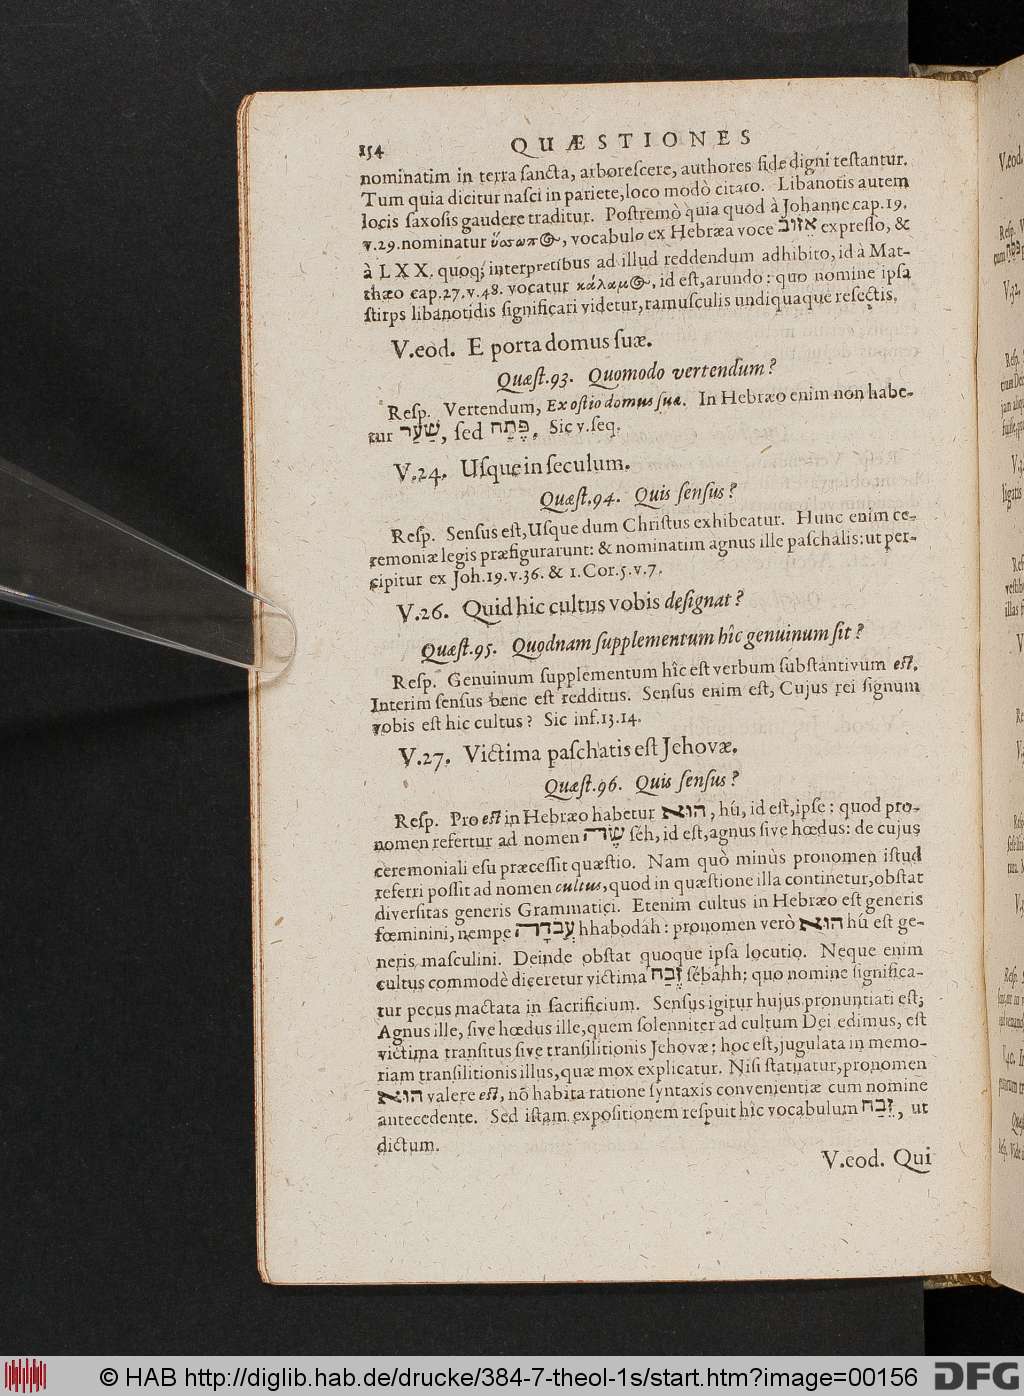 154 QUÆSTIONES
nominatim in terra ſancta, arboreſcere, authores fide digni teſtantur.
Tum quia dicitur naſci in pariete, loco modò citato. Libanotis autem
locis ſaxoſis gaudere traditur. Poſtremò quia quod à Johanne cap. 19.
v. 29. nominatur ὕσσωπ⊙, vocabulo ex Hebræa voce אֵזוֹב expreſſo, &
à LXX. quoq; interpretibus ad illud reddendum adhibito, id à Mat-
thæo cap. 27. v. 48. vocatur κάλαμ⊙, id eſt, arundo: quo nomine ipſa
ſtirps libanotidis ſignificari videtur, ramuſculis undiquaque reſectis.
V. eod. E porta domus ſuæ.
Quæſt. 93. Quomodo vertendum?
Reſp. Vertendum, Ex oſtio domus ſuæ. In Hebræo enim non habe-
tur שַׁעַר, ſed פֶּתַח. Sic v. ſeq.
V. 24. Uſque in ſeculum.
Quæſt. 94. Quis ſenſus?
Reſp. Senſus eſt, Uſque dum Chriſtus exhibeatur. Hunc enim ce-
remoniæ legis præfigurarunt: & nominatim agnus ille paſchalis: ut per-
cipitur ex Joh. 19. v. 36. & 1. Cor. 5. v. 7.
V. 26. Quid hic cultus vobis deſignat?
Quæſt. 95. Quodnam ſupplementum hîc genuinum ſit?
Reſp. Genuinum ſupplementum hîc eſt verbum ſubſtantivum eſt.
Interim ſenſus bene eſt redditus. Senſus enim eſt, Cujus rei ſignum
vobis eſt hic cultus? Sic inf. 13. 14.
V. 27. Victima paſchatis eſt Jehovæ.
Quæſt. 96. Quis ſenſus?
Reſp. Pro eſt in Hebræo habetur הוּא, hú, id eſt, ipſe: quod pro-
nomen refertur ad nomen שֶׂה ſéh, id eſt, agnus ſive hœdus: de cujus
ceremoniali eſu præceſſit quæſtio. Nam quò minùs pronomen iſtud
referri poſſit ad nomen cultus, quod in quæſtione illa continetur, obſtat
diverſitas generis Grammatici. Etenim cultus in Hebræo eſt generis
fœminini, nempe עֲבֹדָה hhabodáh: pronomen verò הוּא hú eſt ge-
neris maſculini. Deinde obſtat quoque ipſa locutio. Neque enim
cultus commodè diceretur victima זֶבַח ſébahh: quo nomine ſignifica-
tur pecus mactata in ſacrificium. Senſus igitur hujus pronuntiati eſt;
Agnus ille, ſive hœdus ille, quem ſolenniter ad cultum Dei edimus, eſt
victima tranſitus ſive tranſilitionis Jehovæ: hoc eſt, jugulata in memo-
riam tranſilitionis illus, quæ mox explicatur. Niſi ſtatuatur, pronomen
הוּא valere eſt, nō habita ratione ſyntaxis convenientiæ cum nomine
antecedente. Sed iſtam expoſitionem reſpuit hîc vocabulum זֶבַח, ut
dictum.
V. eod. Qui
© HAB http://diglib.hab.de/drucke/384-7-theol-1s/start.htm?image=00156 DFG